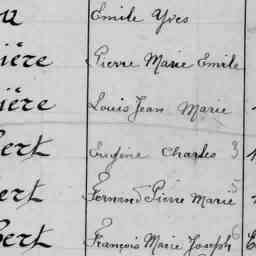 Emile Yves
ière Pierre Marie Emile
ière Louis Jean Marie
ert Eugène Charles 3
ert Fernand Pierre Marie 5
Bert François Marie Joseph 6